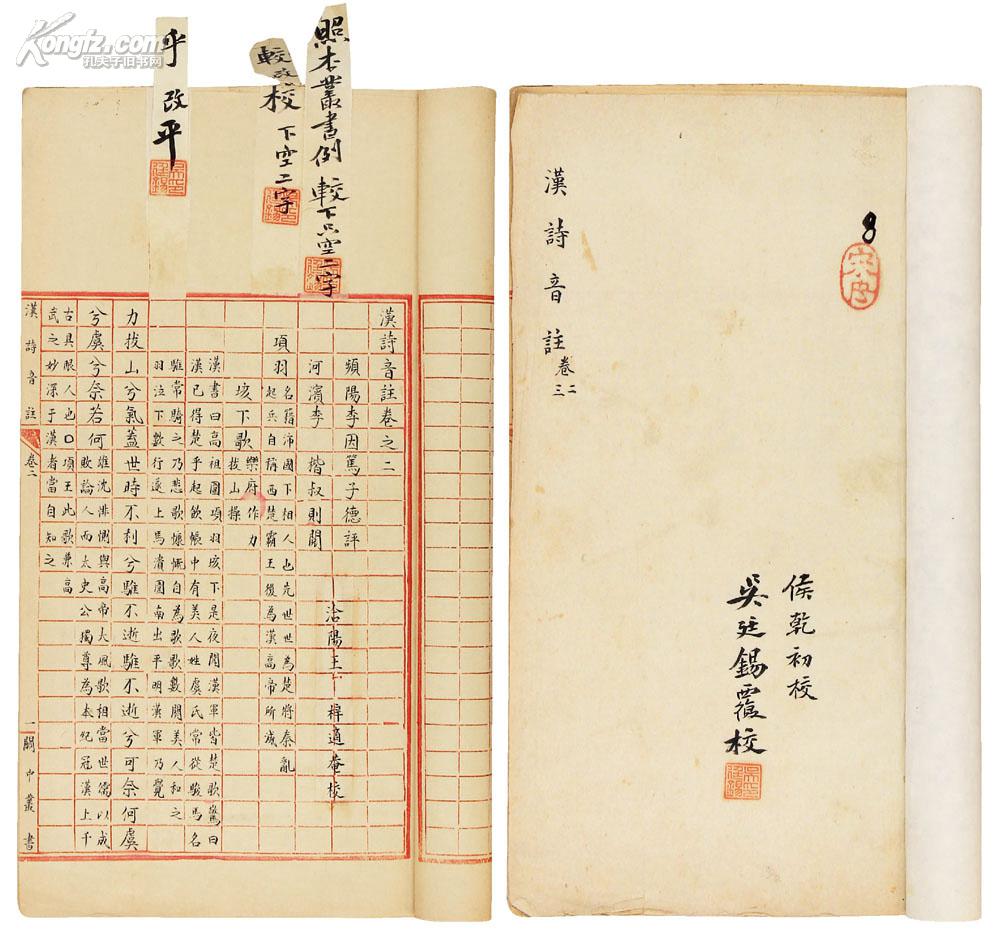 Kongfz.com
孔夫子旧书网
漢詩音註 卷二
三
8
侯乾初校
吳廷錫覆校
照本叢書例較下只空二字
較改校下空二字
乎改平
漢詩音註卷之二
頻陽李因篤子德評
河濱李 楷叔則閱
洽陽王 梓適菴校
項羽 名籍沛國下相人也先世世為楚將秦亂
起兵自稱西楚霸王後為漢高帝所滅
垓下歌 樂府作力
拔山操
漢書曰高祖圍項羽垓下是夜聞漢軍皆楚歌驚曰
漢已得楚乎起飲帳中有美人姓虞氏常從駿馬名
騅常騎之乃悲歌慷慨自為歌歌數闋美人和之
羽泣下數行遂上馬潰圍南出平明漢軍乃覺
力拔山兮氣蓋世時不利兮騅不逝騅不逝兮可奈何虞
兮虞兮奈若何 雄沈悱惻與高帝大風歌相當世儒以成
敗論人而太史公獨尊為本紀冠漢上千
古具眼人也○項王此歌兼高
武之妙深于漢者當自知之
漢詩音註 卷二 一 關中叢書